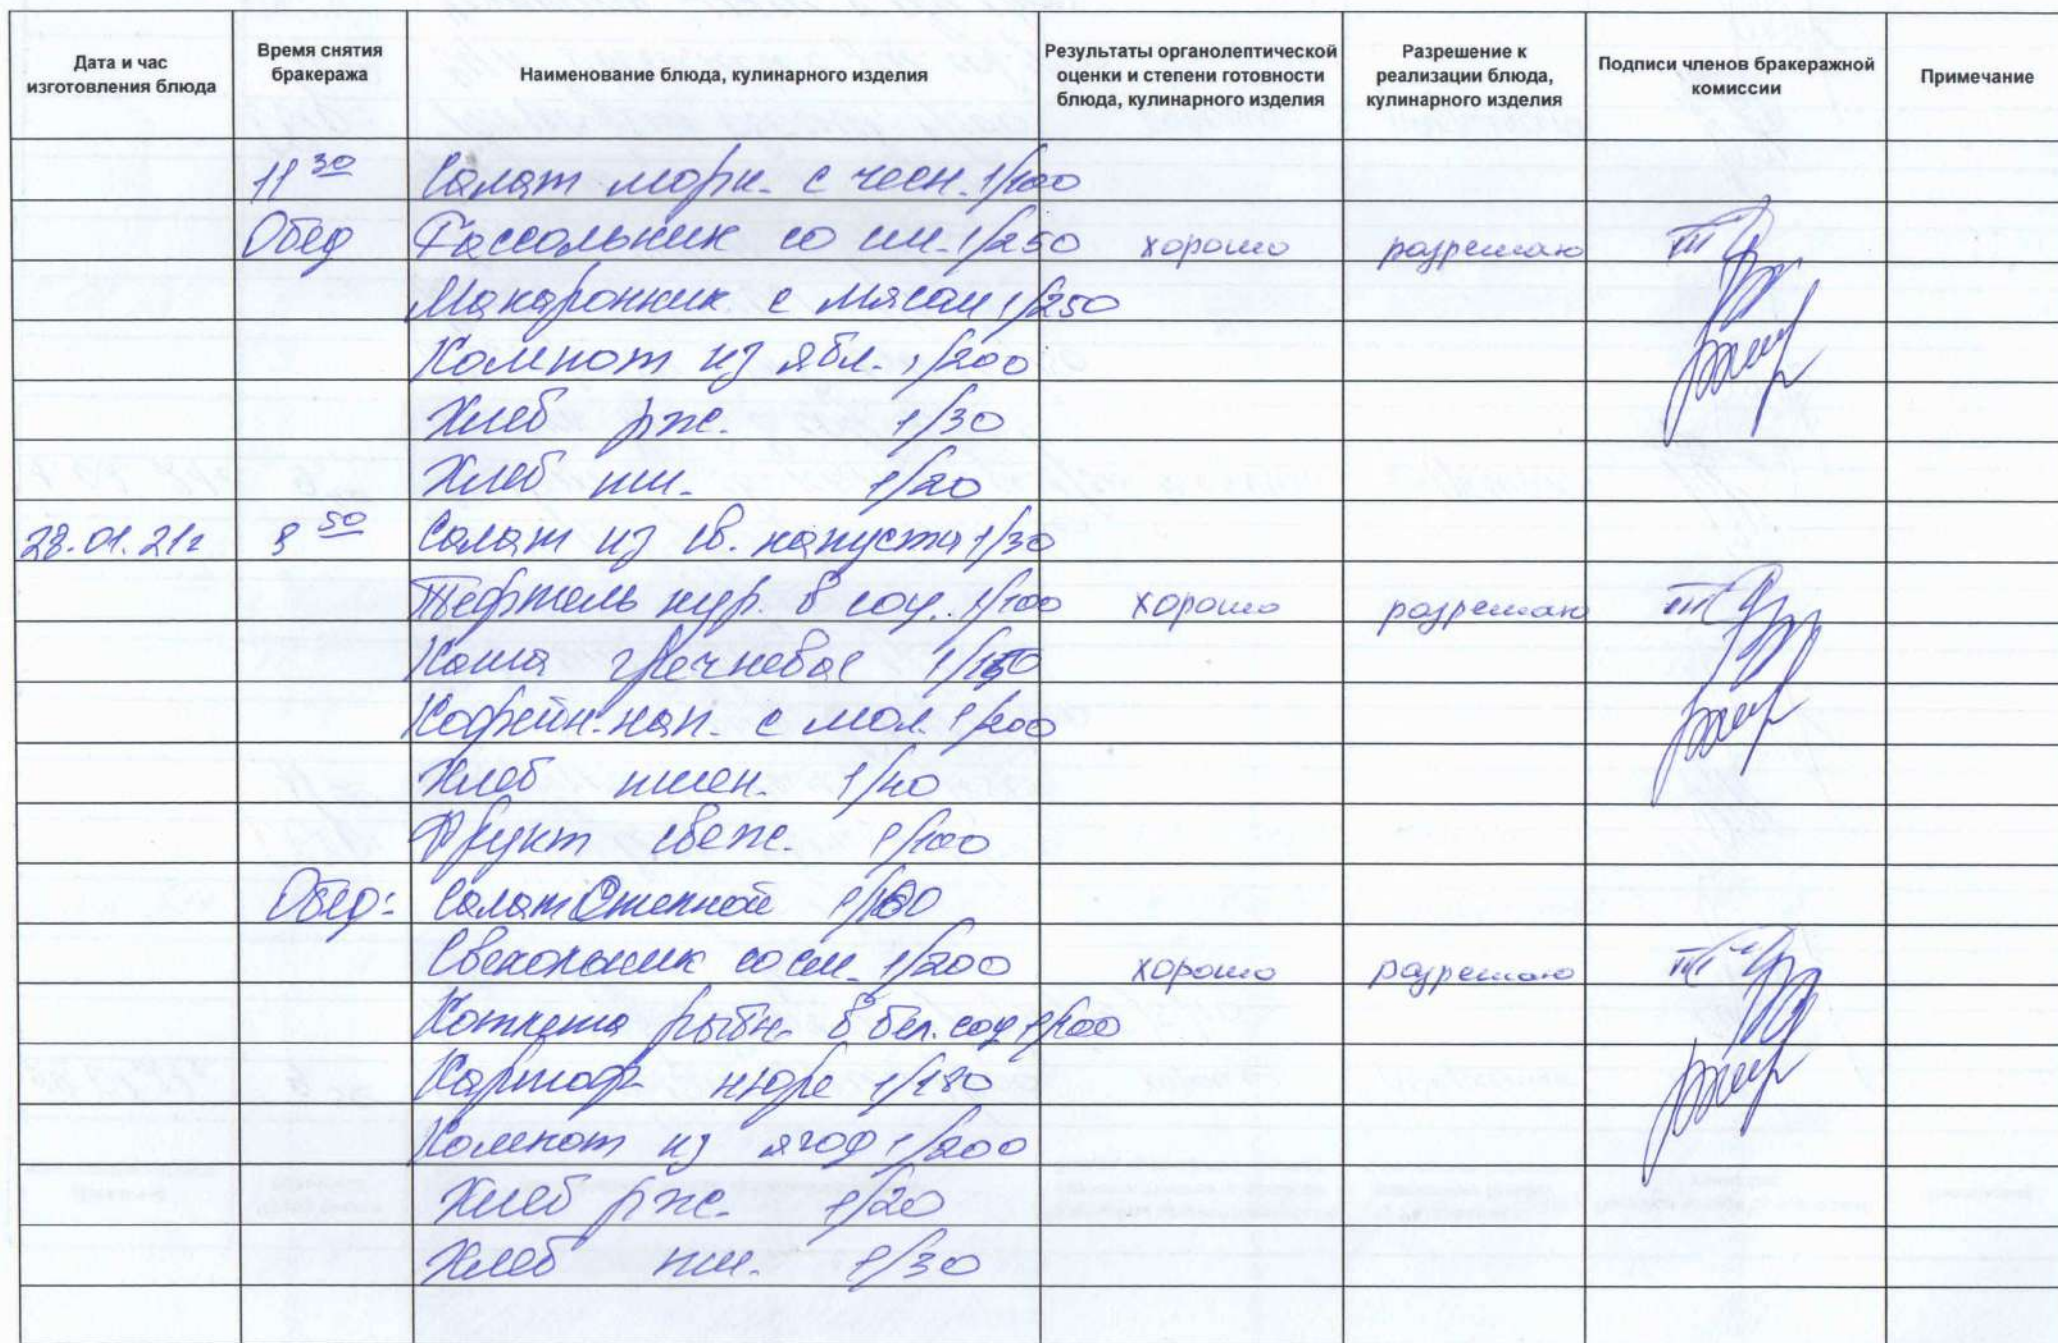 Дата и час изготовления блюда
Время снятия бракеража
Наименование блюда, кулинарного изделия
Результаты органолептической оценки и степени готовности блюда, кулинарного изделия
Разрешение к реализации блюда, кулинарного изделия
Подписи членов бракеражной комиссии
Примечание
11 30 Салат морк. с чесн. 1/100
Обед Рассольник со см. 1/250 хорошо разрешаю
Макаронник с мясом 1/250
Компот из ябл. 1/200
Хлеб рж. 1/30
Хлеб пш. 1/20
28.01.21г 9 50 Салат из св. капусты 1/30
Тефтель кур. в соу. 1/100 хорошо разрешаю
Каша гречневая 1/150
Кофейн. нап. с мол. 1/200
Хлеб пшен. 1/40
Фрукт свеж. 1/100
Обед: Салат Степной
Свекольник со см. 1/200 хорошо разрешаю
Котлета рыбн. в бел. соу 1/100
Картоф. пюре 1/180
Компот из ягод 1/200
Хлеб рж. 1/20
Хлеб пш. 1/30